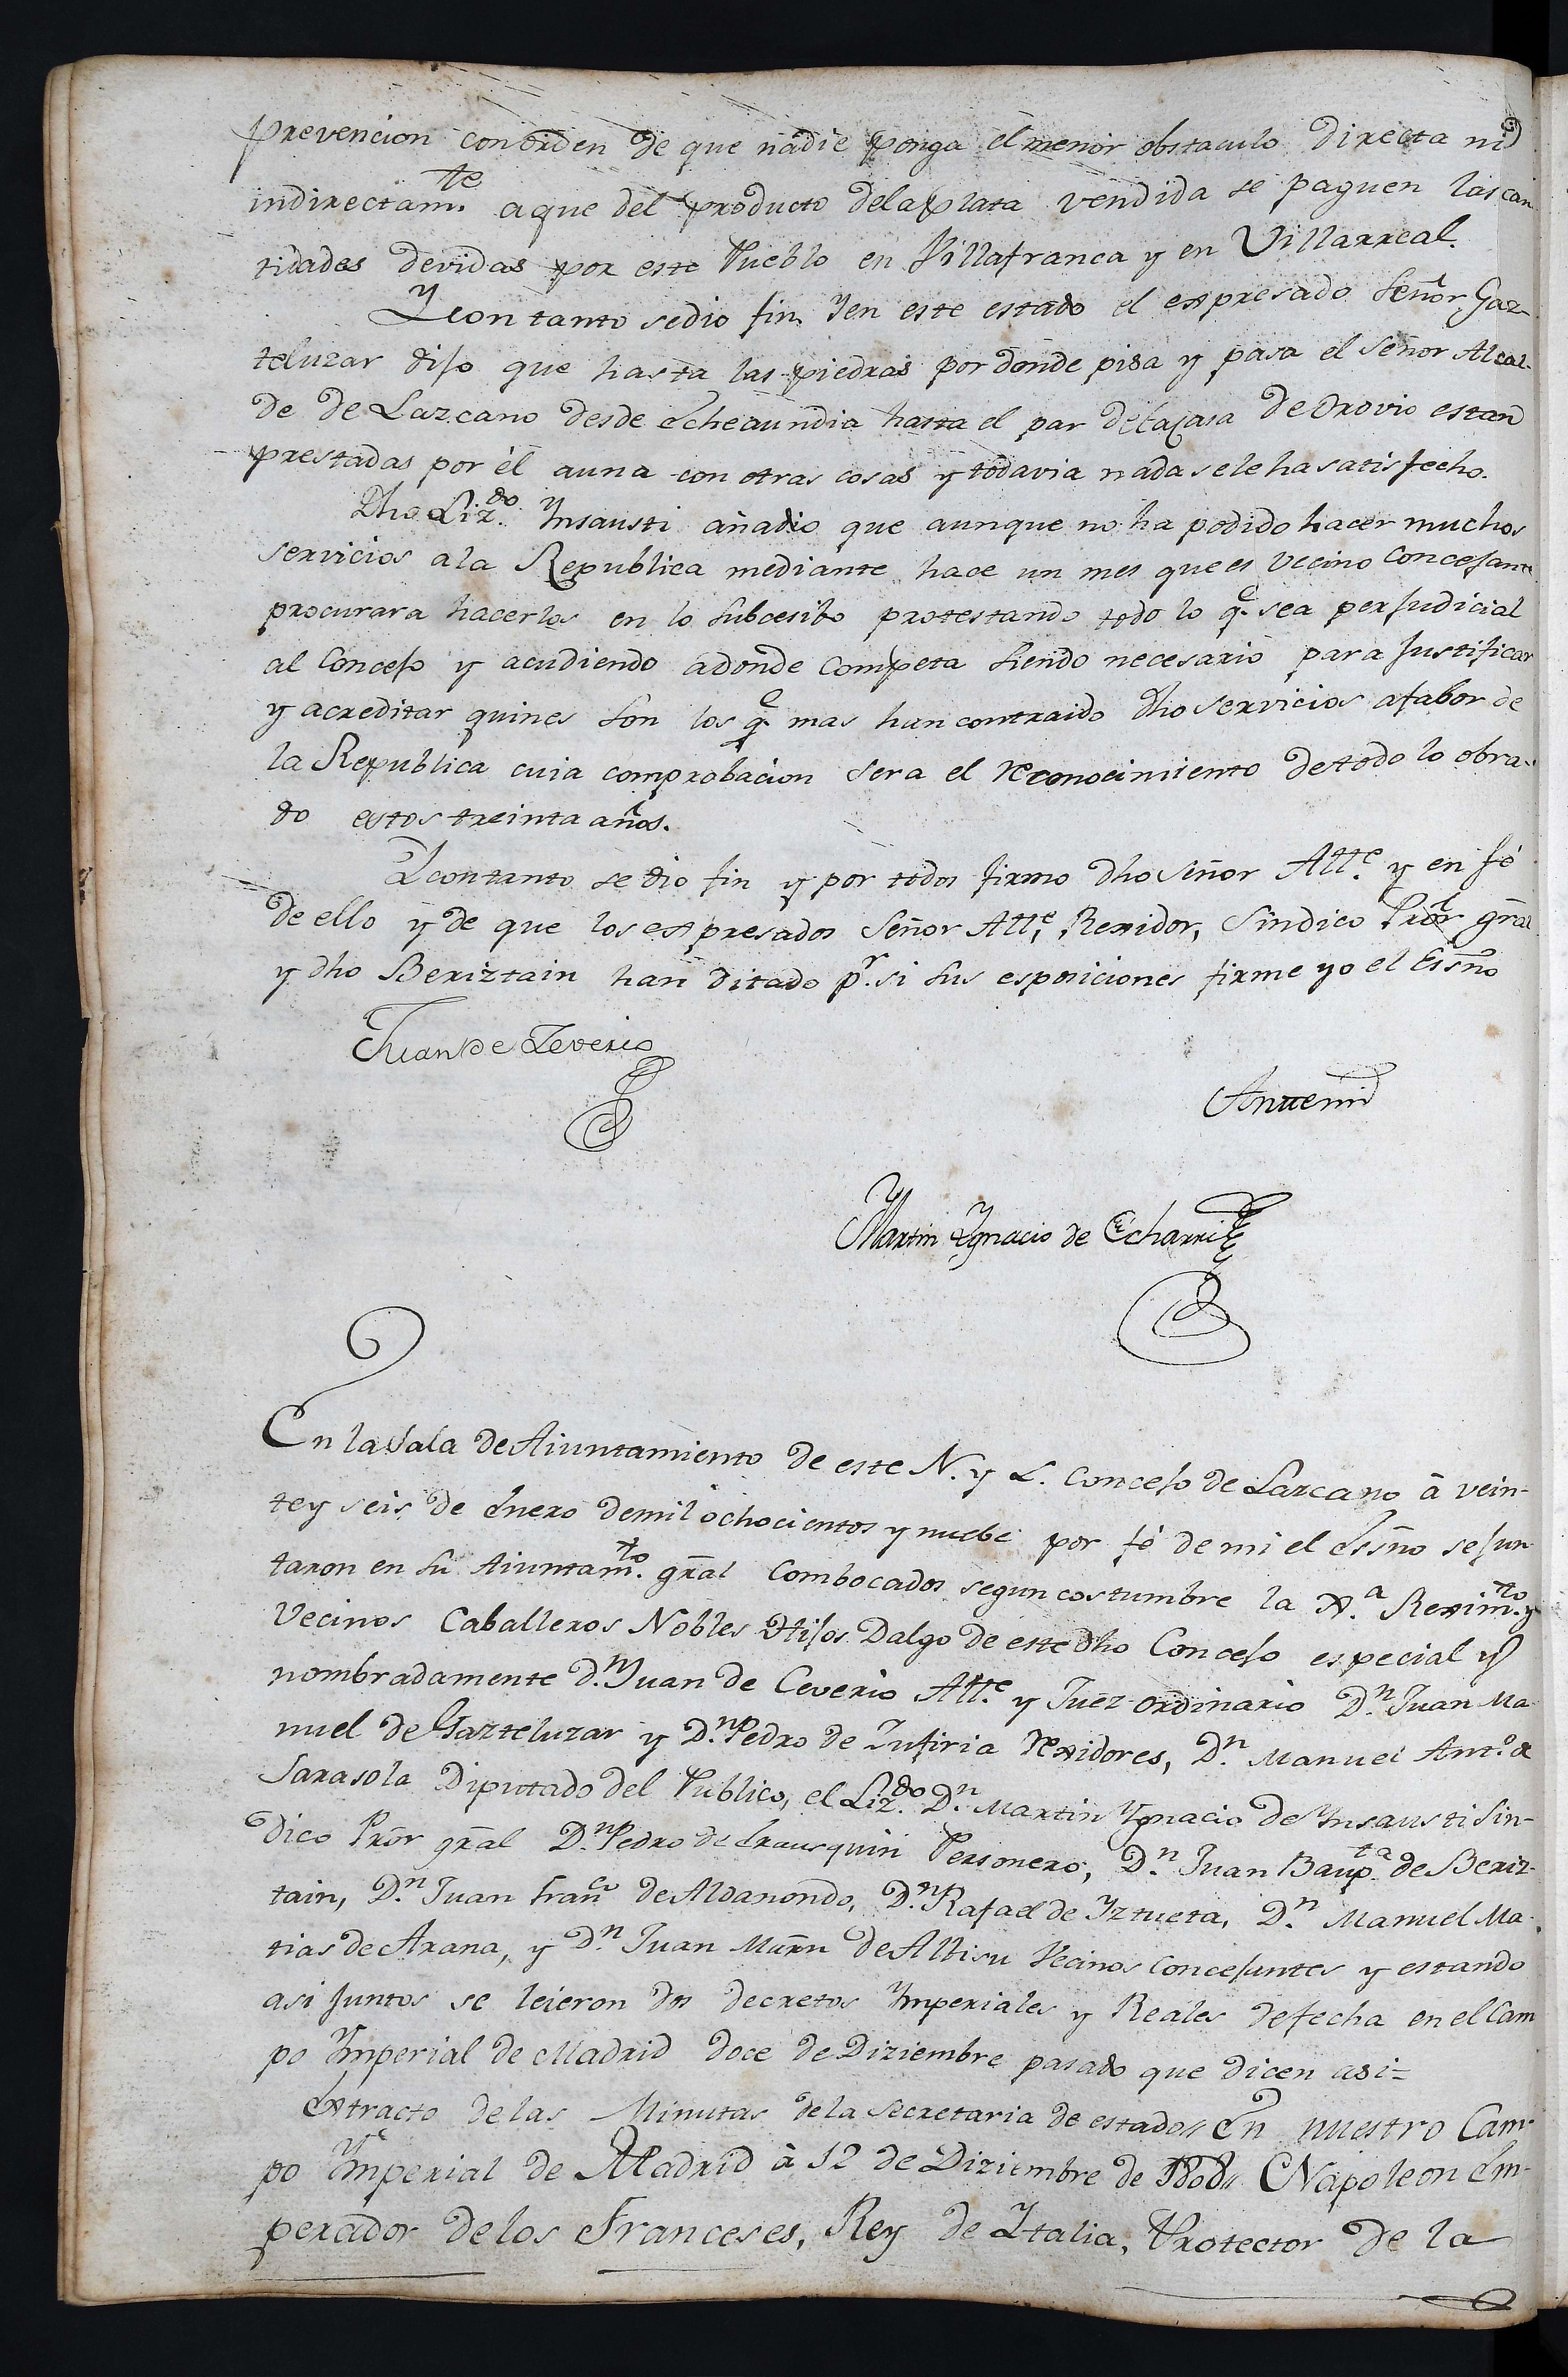 prevencion con orden de que nadie ponga el menor obstaculo directa ni
indirectam.te a que del producto dela plata vendida se paguen las can
tidades devidas por este Pueblo en Villafranca y en Villarreal.
Y con tanto se dio fin. Y en este estado el expresado Señor Gaz-
teluzar dijo que hasta las piedras por donde pisa y pasa el Señor Alcal-
de de Lazcano desde Echeaundia hasta el par dela casa de Orovio estan
prestadas por él auna con otras cosas y todavia nada sele ha satisfecho.
Dho Liz.do Ynsausti añadio que aunque no ha podido hacer muchos
servicios a la Republica mediante hace un mes que es vecino concejante
procurara hacerlos en lo subcesibo protestando todo lo q.e sea perjudicial
al Concejo y acudiendo adonde competa siendo necesario para justificar
y acreditar quines son los q.e mas han contraido dho servicios afabor de
la Republica cuia comprobacion sera el reconocimiento de todo lo obra-
do estos treinta años.
Y con tanto se dio fin y por todos firmo dho Señor Alle. y en fé
de ello y de que los expresados Señor Alle, Rexidor, Sindico Prōr grāl
y dho Beriztain han ditado p.r si sus esposiciones firme yo el Essño
Juan de Zeverio
Antemi
Martin Ygnacio de Echarri
En la Sala de Aiuntamiento de este N. y L. Concejo de Lazcano à vein-
te y seis de Enero de mil ochocientos y nuebe por fé de mi el Essño se jun
taron en su Aiuntam.to grāl combocados segun costumbre la X.a Rexim.to y
Vecinos Caballeros Nobles Hijos Dalgo de este dho Concejo especial y
nombradamente D.n Juan de Ceverio Alle. y Juez ordinario D.n Juan Ma
nuel de Gazteluzar y D.n Pedro de Zufiria Rexidores, D.n Manuel Ant.o de
Sarasola Diputado del Publico, el Liz.do D.n Martin Ygnacio de Ynsausti Sin-
dico Prōr grāl D.n Pedro de Erausquin Personero, D.n Juan Baup.ta de Beriz-
tain, D.n Juan Fran.co de Aldanondo, D.n Rafael de Yztueta, D.n Manuel Ma-
tias de Arana, y D.n Juan Mārn de Albisu Vecinos Concejantes y estando
asi juntos se leieron dos decretos Ymperiales y Reales de fecha en el Cam
po Ymperial de Madrid doce de Diziembre pasado que dicen asi=
Extracto de las Minutas de la Secretaria de estado// En nuestro Cam-
po Ymperial de Madrid à 12 de Diziembre de 1808// Napoleon Em-
perador de los Franceses, Rey de Ytalia, Protector de la